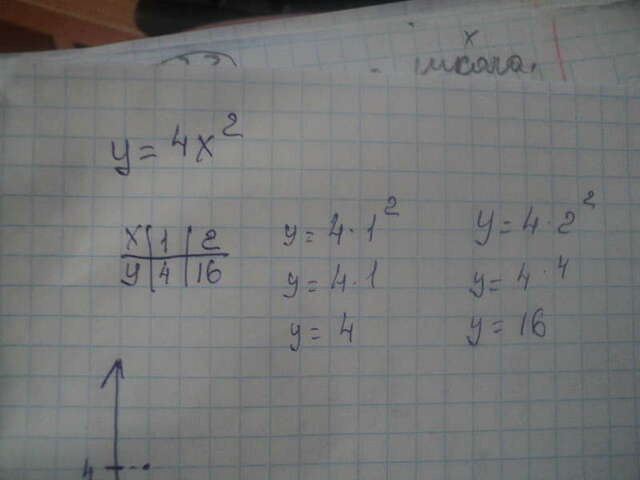 x
школа.
y = 4x²
x | 1 | 2
y | 4 | 16
y = 4 · 1²
y = 4 · 1
y = 4
y = 4 · 2²
y = 4 · 4
y = 16
4